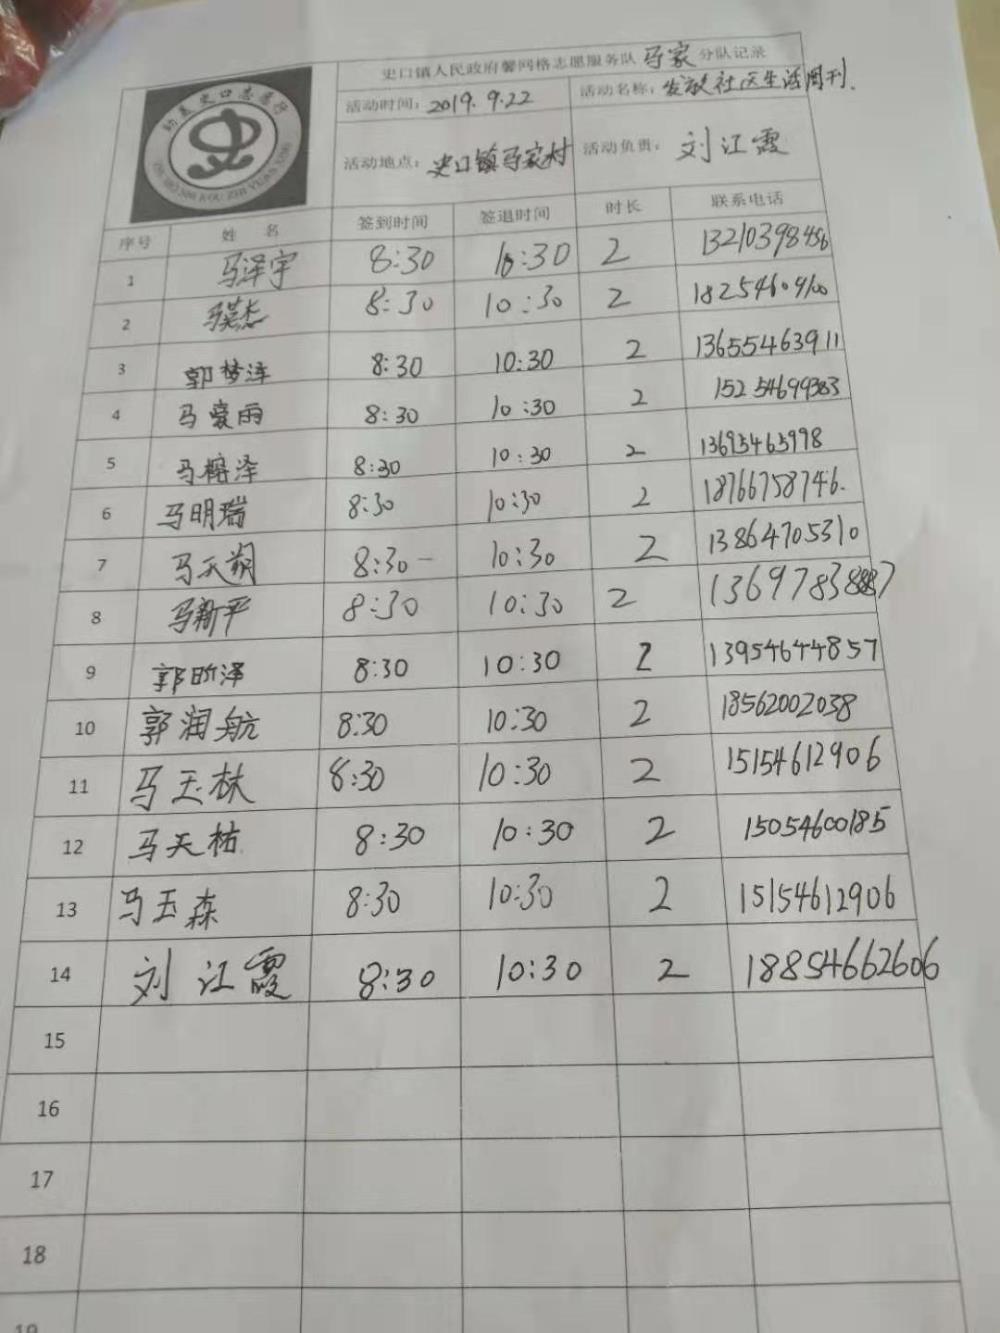 史口镇人民政府馨网格志愿服务队 马家 分队记录
活动时间：2019.9.22 活动名称：发放社区生活周刊.
活动地点：史口镇马家村 活动负责：刘江霞
序号 姓 名 签到时间 签退时间 时长 联系电话
1 马泽宇 8:30 10:30 2 13210398486
2 8:30 10:30 2
3 郭梦泽 8:30 10:30 2 13655463911
4 马爱雨 8:30 10:30 2 15254699383
5 马榕泽 8:30 10:30 2 13695465998
6 马明瑞 8:30 10:30 2 18766758746.
7 马天朔 8:30- 10:30 2 13864705310
8 马新平 8:30 10:30 2
9 郭昕泽 8:30 10:30 2 13954644857
10 郭润航 8:30 10:30 2 18562002038
11 马玉林 8:30 10:30 2 15154612906
12 马天祐 8:30 10:30 2 15054600185
13 马玉森 8:30 10:30 2 15154612906
14 刘江霞 8:30 10:30 2 18854662606
15
16
17
18
19